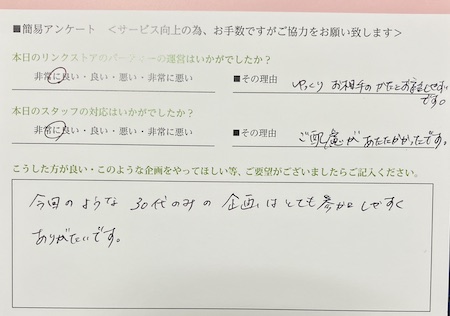 ■簡易アンケート ＜サービス向上の為、お手数ですがご協力をお願い致します＞
本日のリンクストアのパーティーの運営はいかがでしたか？
非常に良い・良い・悪い・非常に悪い ■その理由 ゆっくり お相手の かたとお話しできたです。
本日のスタッフの対応はいかがでしたか？
非常に良い・良い・悪い・非常に悪い ■その理由 ご配慮が あたたかかったです。
こうした方が良い・このような企画をやってほしい等、ご要望がございましたらご記入ください。
今回のような 30代のみの 企画はとても参加しやすく
ありがたいです。